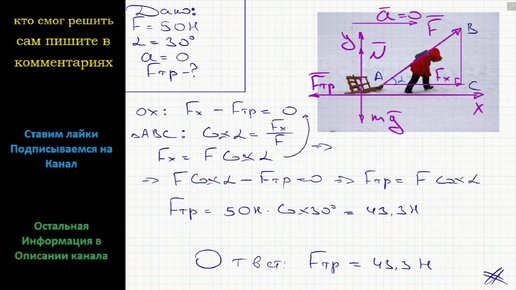 кто смог решить
сам пишите в
комментариях
Ставим лайки
Подписываемся на
Канал
Остальная
Информация в
Описании канала
Дано:
F = 50Н
α = 30°
a = 0
Fтр - ?
a̅ = 0
y
N̅
F̅
B
F̅тр
A
α
Fx
C
x
mg̅
ox: Fx - Fтр = 0
△ABC: Cosα = Fx/F
Fx = F Cosα ⇒
⇒ F Cosα - Fтр = 0 ⇒ Fтр = F Cosα
Fтр = 50Н · Cos30° = 43,3Н
Ответ: Fтр = 43,3Н